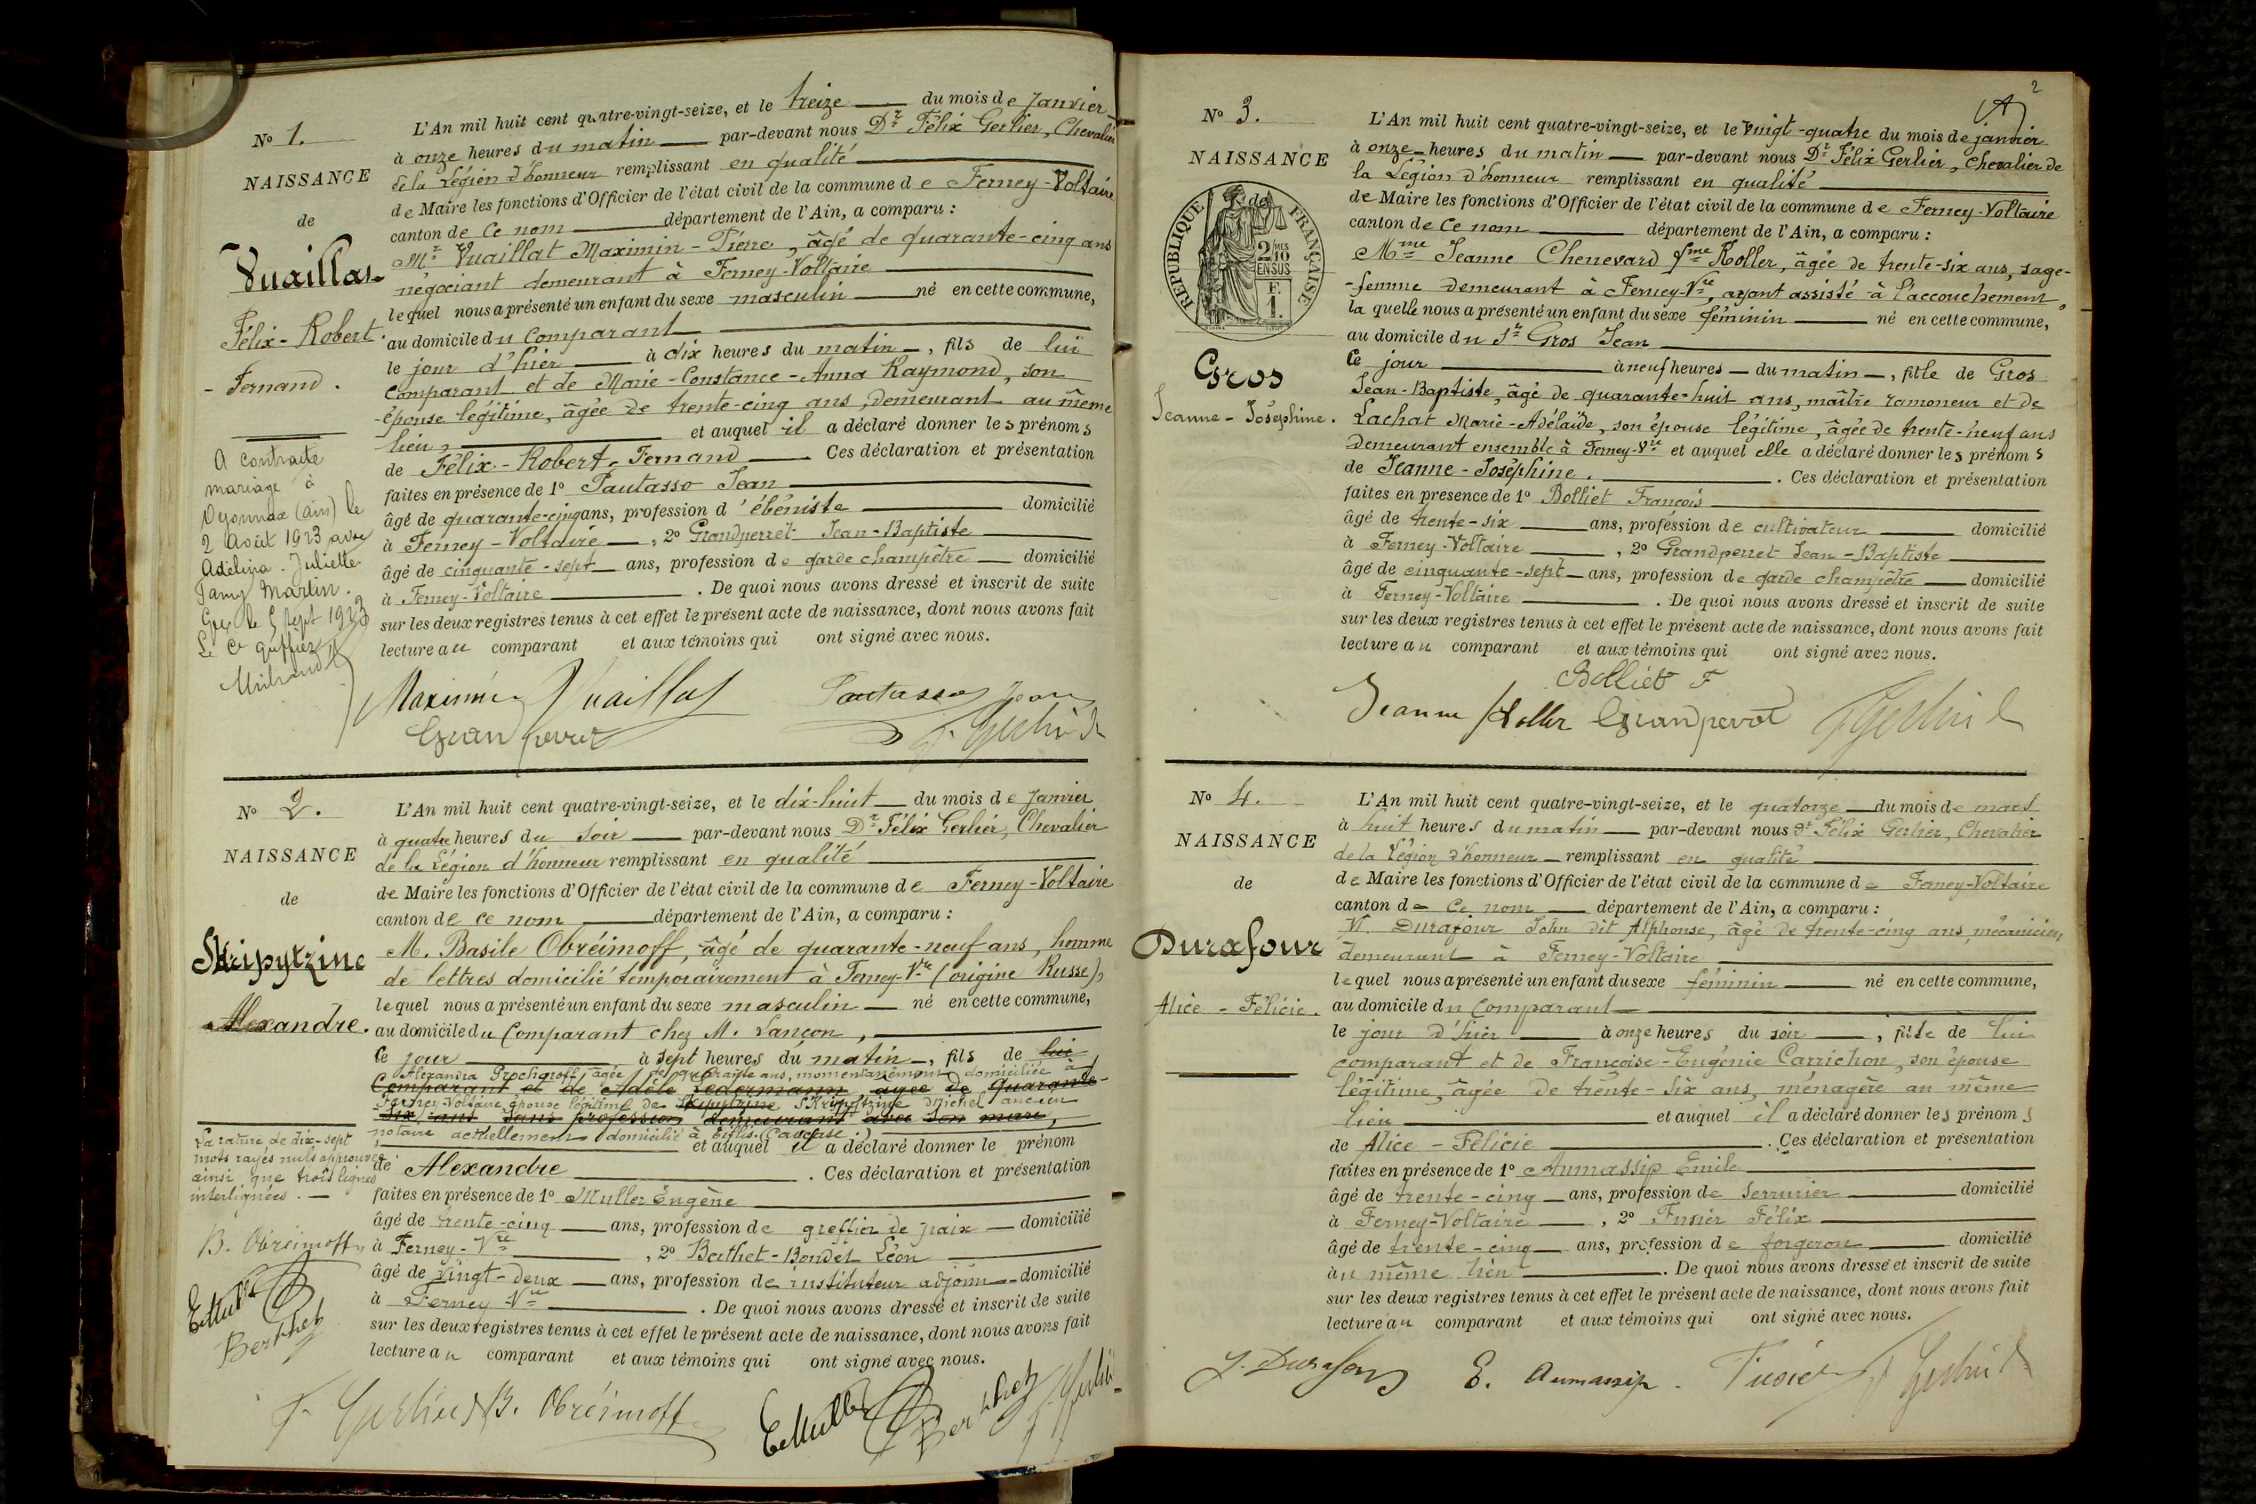 No 1.
NAISSANCE
de
Vuaillat
Félix-Robert
- Fernand.
A contracté
mariage à
Oyonnax (ain) le
2 Août 1923 avec
Adélina-Juliette
Martin.
Gex le 5 Sept 1923
Le Cis greffier
L'An mil huit cent quatre-vingt-seize, et le treize du mois de Janvier
à onze heures du matin par-devant nous Dr Félix Gerlier, Chevalier
de la Légion d'honneur remplissant en qualité
de Maire les fonctions d'Officier de l'état civil de la commune de Ferney-Voltaire
canton de Ce nom département de l'Ain, a comparu :
Mr Vuaillat Maximin-Pierre, âgé de quarante-cinq ans
négociant demeurant à Ferney-Voltaire
lequel nous a présenté un enfant du sexe masculin né en cette commune,
au domicile du Comparant
le jour d'hier à dix heures du matin, fils de lui
Comparant et de Marie-Constance-Anna Raymond, son
épouse légitime, âgée de trente-cinq ans, demeurant au même
lieu, et auquel il a déclaré donner les prénoms
de Félix-Robert-Fernand Ces déclaration et présentation
faites en présence de 1º Pautasso Jean
âgé de quarante-cinq ans, profession d'ébéniste domicilié
à Ferney-Voltaire, 2º Grandperret Jean-Baptiste
âgé de cinquante-sept ans, profession de garde champêtre domicilié
à Ferney-Voltaire. De quoi nous avons dressé et inscrit de suite
sur les deux registres tenus à cet effet le présent acte de naissance, dont nous avons fait
lecture au comparant et aux témoins qui ont signé avec nous.
Maximin Vuaillat Pautasso Jean
Grandperret F. Gerlier Dr
No 2.
NAISSANCE
de
Skripytzine
Alexandre.
La rature de dix-sept
mots rayés nuls approuvée
ainsi que trois lignes
interlignées. -
B. Obréimoff
E Muller
Berthet
L'An mil huit cent quatre-vingt-seize, et le dix-huit du mois de Janvier
à quatre heures du soir par-devant nous Dr Félix Gerlier, Chevalier
de la Légion d'honneur remplissant en qualité
de Maire les fonctions d'Officier de l'état civil de la commune de Ferney-Voltaire
canton de ce nom département de l'Ain, a comparu :
M. Basile Obréimoff, âgé de quarante-neuf ans, homme
de lettres domicilié temporairement à Ferney-Vre (origine Russe),
lequel nous a présenté un enfant du sexe masculin né en cette commune,
au domicile du Comparant chez M. Lançon,
Ce jour à sept heures du matin, fils de lui
Alexandra Prochoroff âgée de quarante ans, momentanément domiciliée à
Comparant et de Adèle Ledermann âgée de quarante-
Ferney-Voltaire, épouse légitime de Skripytzine Michel ancien
six ans sans profession demeurant avec son mari,
notaire actuellement domicilié à Tiflis (Caucase.)
et auquel il a déclaré donner le prénom
de Alexandre. Ces déclaration et présentation
faites en présence de 1º Muller Eugène
âgé de trente-cinq ans, profession de greffier de paix domicilié
à Ferney-Vre, 2º Berthet-Bondet Léon
âgé de Vingt-deux ans, profession de instituteur adjoint domicilié
à Ferney-Vre. De quoi nous avons dressé et inscrit de suite
sur les deux registres tenus à cet effet le présent acte de naissance, dont nous avons fait
lecture au comparant et aux témoins qui ont signé avec nous.
F. Gerlier Dr B. Obréimoff E Muller Berthet F. Gerlier
2
No 3.
NAISSANCE
de
RÉPUBLIQUE FRANÇAISE
2/10 MES
EN SUS
F.
1.
Gros
Jeanne-Joséphine.
L'An mil huit cent quatre-vingt-seize, et le vingt-quatre du mois de janvier
à onze heures du matin par-devant nous Dr Félix Gerlier, Chevalier de
la Légion d'honneur remplissant en qualité
de Maire les fonctions d'Officier de l'état civil de la commune de Ferney-Voltaire
canton de Ce nom département de l'Ain, a comparu :
Mme Jeanne Chenevard fme Koller, âgée de trente-six ans, sage-
-femme demeurant à Ferney-Vre, ayant assisté à l'accouchement,
laquelle nous a présenté un enfant du sexe féminin né en cette commune,
au domicile du Sr Gros Jean
Ce jour à neuf heures du matin, fille de Gros
Jean-Baptiste, âgé de quarante-huit ans, maître ramoneur et de
Lachat Marie-Adélaïde, son épouse légitime, âgée de trente-neuf ans
demeurant ensemble à Ferney-Vre et auquel elle a déclaré donner les prénoms
de Jeanne-Joséphine. Ces déclaration et présentation
faites en présence de 1º Bolliet François
âgé de trente-six ans, profession de cultivateur domicilié
à Ferney-Voltaire, 2º Grandperret Jean-Baptiste
âgé de cinquante-sept ans, profession de garde champêtre domicilié
à Ferney-Voltaire. De quoi nous avons dressé et inscrit de suite
sur les deux registres tenus à cet effet le présent acte de naissance, dont nous avons fait
lecture au comparant et aux témoins qui ont signé avec nous.
Bolliet F
Jeanne Koller Grandperret F Gerlier Dr
No 4.
NAISSANCE
de
Durafour
Alice-Félicie.
L'An mil huit cent quatre-vingt-seize, et le quatorze du mois de mars
à huit heures du matin par-devant nous Dr Félix Gerlier, Chevalier
de la Légion d'honneur remplissant en qualité
de Maire les fonctions d'Officier de l'état civil de la commune de Ferney-Voltaire
canton de Ce nom département de l'Ain, a comparu :
M. Durafour John dit Alphonse, âgé de trente-cinq ans, mécanicien
demeurant à Ferney-Voltaire
lequel nous a présenté un enfant du sexe féminin né en cette commune,
au domicile du Comparant
le jour d'hier à onze heures du soir, fille de lui
comparant et de Françoise-Eugénie Carrichon, son épouse
légitime, âgée de trente-six ans, ménagère au même
lieu et auquel il a déclaré donner les prénoms
de Alice-Félicie. Ces déclaration et présentation
faites en présence de 1º Aumassip Emile
âgé de trente-cinq ans, profession de serrurier domicilié
à Ferney-Voltaire, 2º Fusier Félix
âgé de trente-cinq ans, profession de forgeron domicilié
au même lieu. De quoi nous avons dressé et inscrit de suite
sur les deux registres tenus à cet effet le présent acte de naissance, dont nous avons fait
lecture au comparant et aux témoins qui ont signé avec nous.
J. Durafour E. Aumassip Fusier F Gerlier Dr